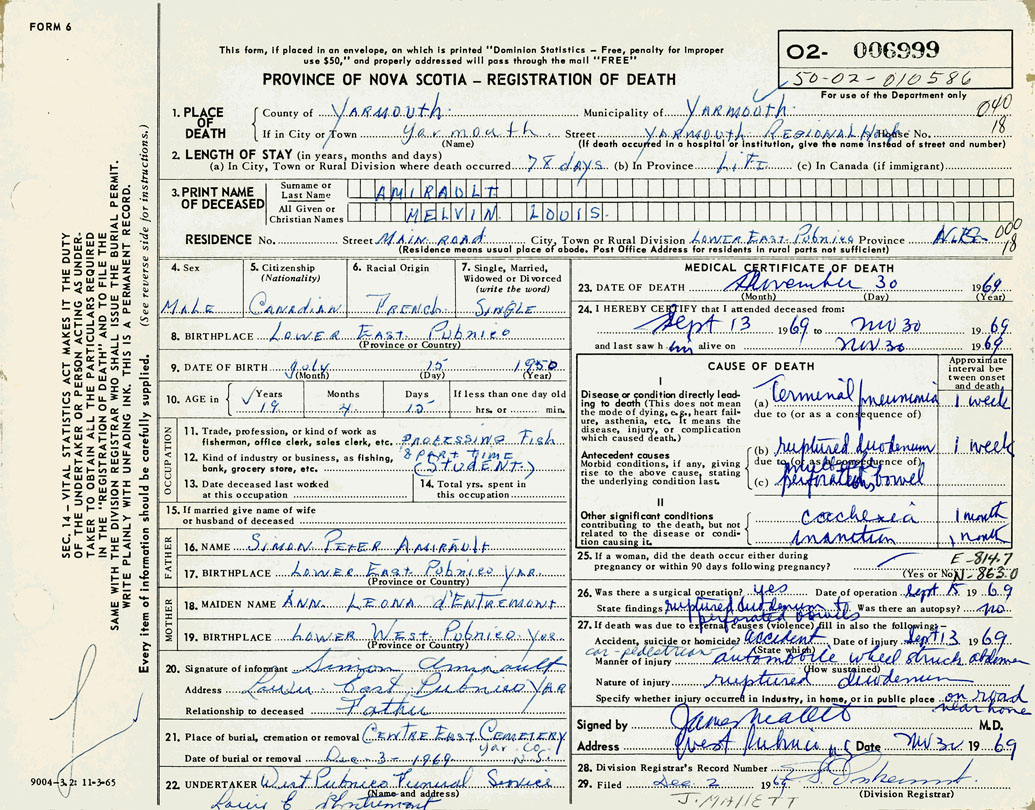 FORM 6
This form, if placed in an envelope, on which is printed "Dominion Statistics – Free, penalty for improper
use $50," and properly addressed will pass through the mail "FREE"
PROVINCE OF NOVA SCOTIA – REGISTRATION OF DEATH
02- 006999
50-02-010586
For use of the Department only
040
18
1. PLACE OF DEATH
County of YARMOUTH Municipality of YARMOUTH
If in City or Town Yarmouth Street YARMOUTH REGIONAL Hosp House No.
(Name) (If death occurred in a hospital or institution, give the name instead of street and number)
2. LENGTH OF STAY (in years, months and days)
(a) In City, Town or Rural Division where death occurred 78 days (b) In Province LIFE (c) In Canada (if immigrant)
3. PRINT NAME OF DECEASED
Surname or Last Name AMIRAULT
All Given or Christian Names MELVIN LOUIS
RESIDENCE No. Street MAIN ROAD City, Town or Rural Division LOWER EAST PUBNICO Province N.S.
000
18
(Residence means usual place of abode. Post Office Address for residents in rural parts not sufficient)
4. Sex MALE
5. Citizenship (Nationality) CANADIAN
6. Racial Origin FRENCH
7. Single, Married, Widowed or Divorced (write the word) SINGLE
8. BIRTHPLACE LOWER EAST PUBNICO
(Province or Country)
9. DATE OF BIRTH July 15 1950
(Month) (Day) (Year)
10. AGE in Years 19 Months 4 Days 15 If less than one day old hrs. or min.
OCCUPATION
11. Trade, profession, or kind of work as fisherman, office clerk, sales clerk, etc. PROCESSING FISH
12. Kind of industry or business, as fishing, bank, grocery store, etc. & PART TIME (STUDENT)
13. Date deceased last worked at this occupation
14. Total yrs. spent in this occupation
15. If married give name of wife or husband of deceased
FATHER
16. NAME SIMON PETER AMIRAULT
17. BIRTHPLACE LOWER EAST PUBNICO YAR.
(Province or Country)
MOTHER
18. MAIDEN NAME ANN LEONA d'ENTREMONT
19. BIRTHPLACE LOWER WEST PUBNICO YAR.
(Province or Country)
20. Signature of informant Simon Amirault
Address Lower East Pubnico YAR
Relationship to deceased Father
21. Place of burial, cremation or removal CENTRE EAST CEMETERY
Yar. Co. N.S.
Date of burial or removal Dec-3-1969
22. UNDERTAKER West Pubnico Funeral Service
(Name and address)
MEDICAL CERTIFICATE OF DEATH
23. DATE OF DEATH November 30 1969
(Month) (Day) (Year)
24. I HEREBY CERTIFY that I attended deceased from:
Sept 13 1969 to Nov 30 1969
and last saw him alive on Nov 30 1969
CAUSE OF DEATH
Approximate interval between onset and death
I
Disease or condition directly leading to death (This does not mean the mode of dying, e.g., heart failure, asthenia, etc. It means the disease, injury, or complication which caused death.)
(a) Terminal pneumonia 1 week
due to (or as a consequence of)
Antecedent causes
Morbid conditions, if any, giving rise to the above cause, stating the underlying condition last.
(b) ruptured duodenum 1 week
due to (or as a consequence of)
(c) perforations bowel
II
Other significant conditions
contributing to the death, but not related to the disease or condition causing it.
cachexia 1 month
inanition 1 month
25. If a woman, did the death occur either during pregnancy or within 90 days following pregnancy?
(Yes or No)
E-814.7
N-863.0
26. Was there a surgical operation? yes Date of operation Sept 15 1969
State findings ruptured duodenum perforated bowels Was there an autopsy? no
27. If death was due to external causes (violence) fill in also the following:–
Accident, suicide or homicide? accident Date of injury Sept 13 1969
(State which)
car-pedestrian
Manner of injury automobile wheel struck abdomen
(How sustained)
Nature of injury ruptured duodenum
Specify whether injury occurred in industry, in home, or in public place on road near home
Signed by M.D.
Address West Pubnico N.S. Date Nov 30 1969
28. Division Registrar's Record Number
29. Filed Dec 2 196
(Division Registrar)
J. MALLETT
SEC. 14 – VITAL STATISTICS ACT MAKES IT THE DUTY
OF THE UNDERTAKER OR PERSON ACTING AS UNDER-
TAKER TO OBTAIN ALL THE PARTICULARS REQUIRED
IN THE "REGISTRATION OF DEATH" AND TO FILE THE
SAME WITH THE DIVISION REGISTRAR WHO SHALL ISSUE THE BURIAL PERMIT.
WRITE PLAINLY WITH UNFADING INK. THIS IS A PERMANENT RECORD.
Every item of information should be carefully supplied. (See reverse side for instructions.)
9004-3.2: 11-3-65